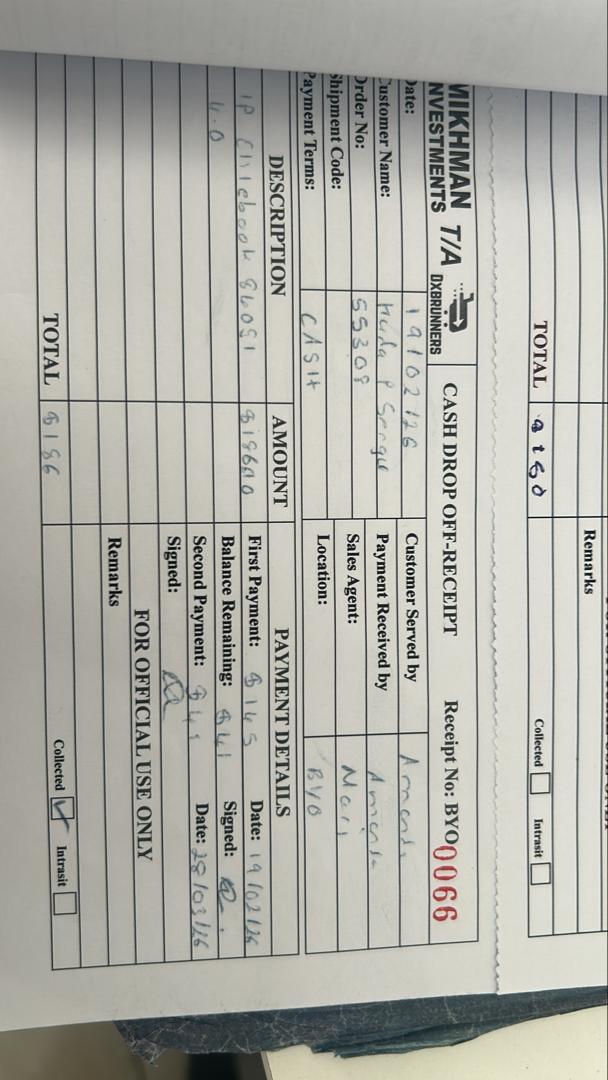 Remarks
TOTAL $180
Collected Intrasit
MIKHMAN T/A
NVESTMENTS DXBRUNNERS
CASH DROP OFF-RECEIPT Receipt No: BYO 0066
Date: 19/02/26 Customer Served by Amanda
Customer Name: Payment Received by Amanda
Order No: 55308 Sales Agent:
Shipment Code: Location: BYO
Payment Terms: CASH
DESCRIPTION AMOUNT PAYMENT DETAILS
$186.00 First Payment: $145 Date: 19/02/26
4.0 Balance Remaining: $41 Signed:
Second Payment: $41 Date: 28/03/26
Signed:
FOR OFFICIAL USE ONLY
Remarks
TOTAL $186 Collected Intrasit